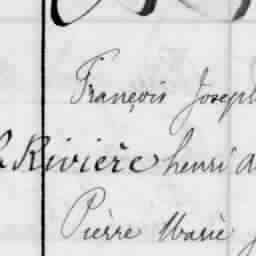 François Joseph
Rivière henri
Pièrre Marie